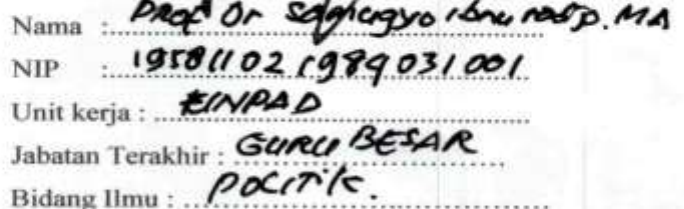 Nama : Prof Dr ibnu MA
NIP : 19581102 1984031001
Unit kerja :
Jabatan Terakhir : GURU BESAR
Bidang Ilmu : POLITIK.